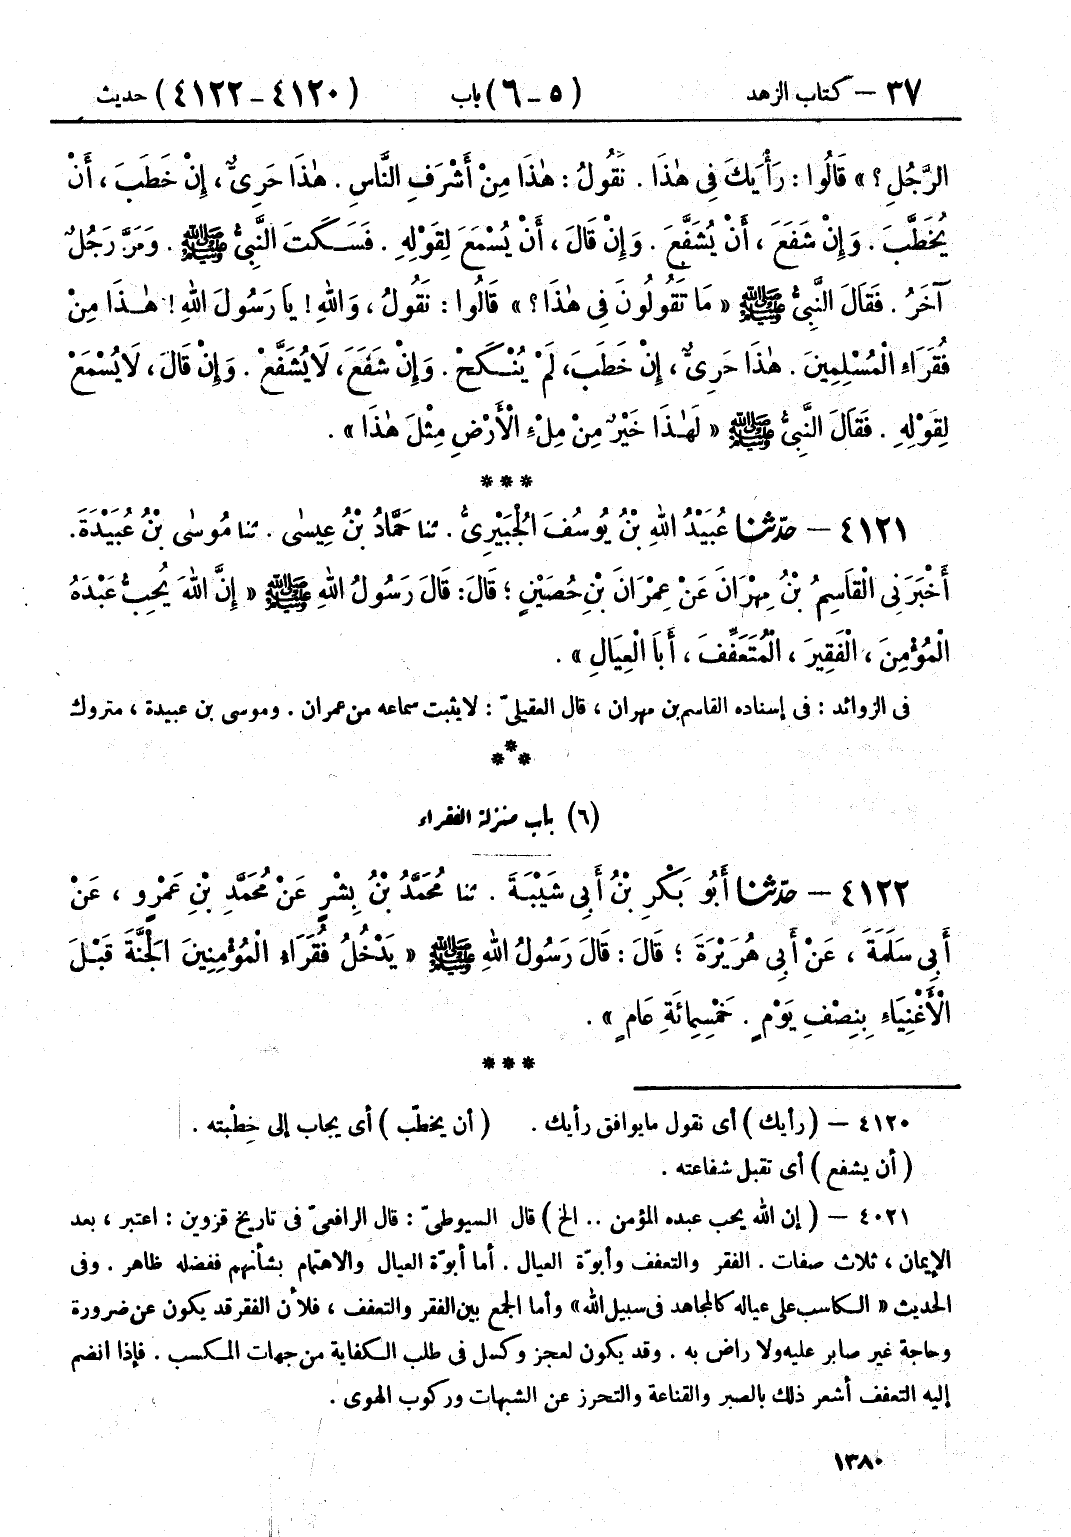 ٣٧ – كتاب الزهد (٥ - ٦) باب (٤١٢٠ - ٤١٢٢) حديث
الرَّجُلِ؟» قَالُوا: رَأْيَكَ فِى هٰذَا. نَقُولُ: هٰذَا مِنْ أَشْرَفِ النَّاسِ. هٰذَا حَرِىٌّ، إِنْ خَطَبَ، أَنْ
يُخَطَّبَ. وَإِنْ شَفَعَ، أَنْ يُشَفَّعَ. وَإِنْ قَالَ، أَنْ يُسْمَعَ لِقَوْلِهِ. فَسَكَتَ النَّبِىُّ ﷺ. وَمَرَّ رَجُلٌ
آخَرُ. فَقَالَ النَّبِىُّ ﷺ «مَا تَقُولُونَ فِى هٰذَا؟» قَالُوا: نَقُولُ، وَاللهِ! يَا رَسُولَ اللهِ! هٰذَا مِنْ
فُقَرَاءِ الْمُسْلِمِينَ. هٰذَا حَرِىٌّ، إِنْ خَطَبَ، لَمْ يُنْكَحْ. وَإِنْ شَفَعَ، لَا يُشَفَّعْ. وَإِنْ قَالَ، لَا يُسْمَعْ
لِقَوْلِهِ. فَقَالَ النَّبِىُّ ﷺ «لَهٰذَا خَيْرٌ مِنْ مِلْءِ الْأَرْضِ مِثْلَ هٰذَا».
***
٤١٢١ – حدّثنا عُبَيْدُ اللهِ بْنُ يُوسُفَ الْجُبَيْرِىُّ. ثنا حَمَّادُ بْنُ عِيسٰى. ثنا مُوسٰى بْنُ عُبَيْدَةَ.
أَخْبَرَنِى الْقَاسِمُ بْنُ مِهْرَانَ عَنْ عِمْرَانَ بْنِ حُصَيْنٍ؛ قَالَ: قَالَ رَسُولُ اللهِ ﷺ «إِنَّ اللهَ يُحِبُّ عَبْدَهُ
الْمُؤْمِنَ، الْفَقِيرَ، الْمُتَعَفِّفَ، أَبَا الْعِيَالِ».
فى الزوائد: فى إسناده القاسم بن مهران، قال العقيلىّ: لا يثبت سماعه من عمران. وموسى بن عبيدة، متروك
***
(٦) باب منزلة الفقراء
٤١٢٢ – حدّثنا أَبُو بَكْرِ بْنُ أَبِى شَيْبَةَ. ثنا مُحَمَّدُ بْنُ بِشْرٍ عَنْ مُحَمَّدِ بْنِ عَمْرٍو، عَنْ
أَبِى سَلَمَةَ، عَنْ أَبِى هُرَيْرَةَ؛ قَالَ: قَالَ رَسُولُ اللهِ ﷺ «يَدْخُلُ فُقَرَاءُ الْمُؤْمِنِينَ الْجَنَّةَ قَبْلَ
الْأَغْنِيَاءِ بِنِصْفِ يَوْمٍ. خَمْسِمِائَةِ عَامٍ».
***
٤١٢٠ – (رأيك) أى نقول ما يوافق رأيك. (أن يخطّب) أى يجاب إلى خِطْبته.
(أن يشفع) أى تقبل شفاعته.
٤٠٢١ – (إن الله يحب عبده المؤمن .. الخ) قال السيوطىّ: قال الرافعىّ فى تاريخ قزوين: اعتبر، بعد
الإيمان، ثلاث صفات. الفقر والتعفف وأبوّة العيال. أما أبوّة العيال والاهتمام بشأنهم ففضله ظاهر. وفى
الحديث «الكاسب على عياله كالمجاهد فى سبيل الله» وأما الجمع بين الفقر والتعفف، فلأن الفقر قد يكون عن ضرورة
وحاجة غير صابر عليه ولا راض به. وقد يكون لعجز وكسل فى طلب الكفاية من جهات المكسب. فإذا انضم
إليه التعفف أشعر ذلك بالصبر والقناعة والتحرز عن الشبهات وركوب الهوى.
١٣٨٠